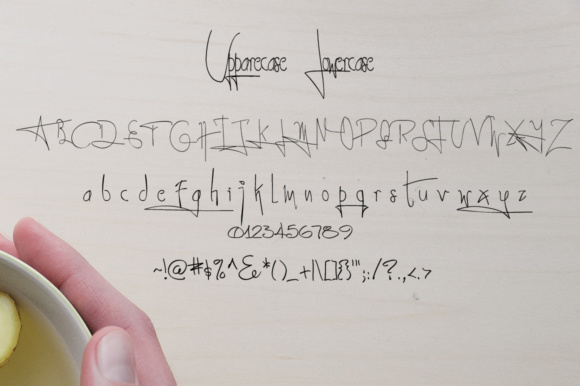 Upparecase Lowercase
ABCDEFGHIJKLMNOPQRSTUVWXYZ
abcdefghijklmnopqrstuvwxyz
0123456789
~!@#$%^&*()_+|\[]{}"';:/?.,<.>